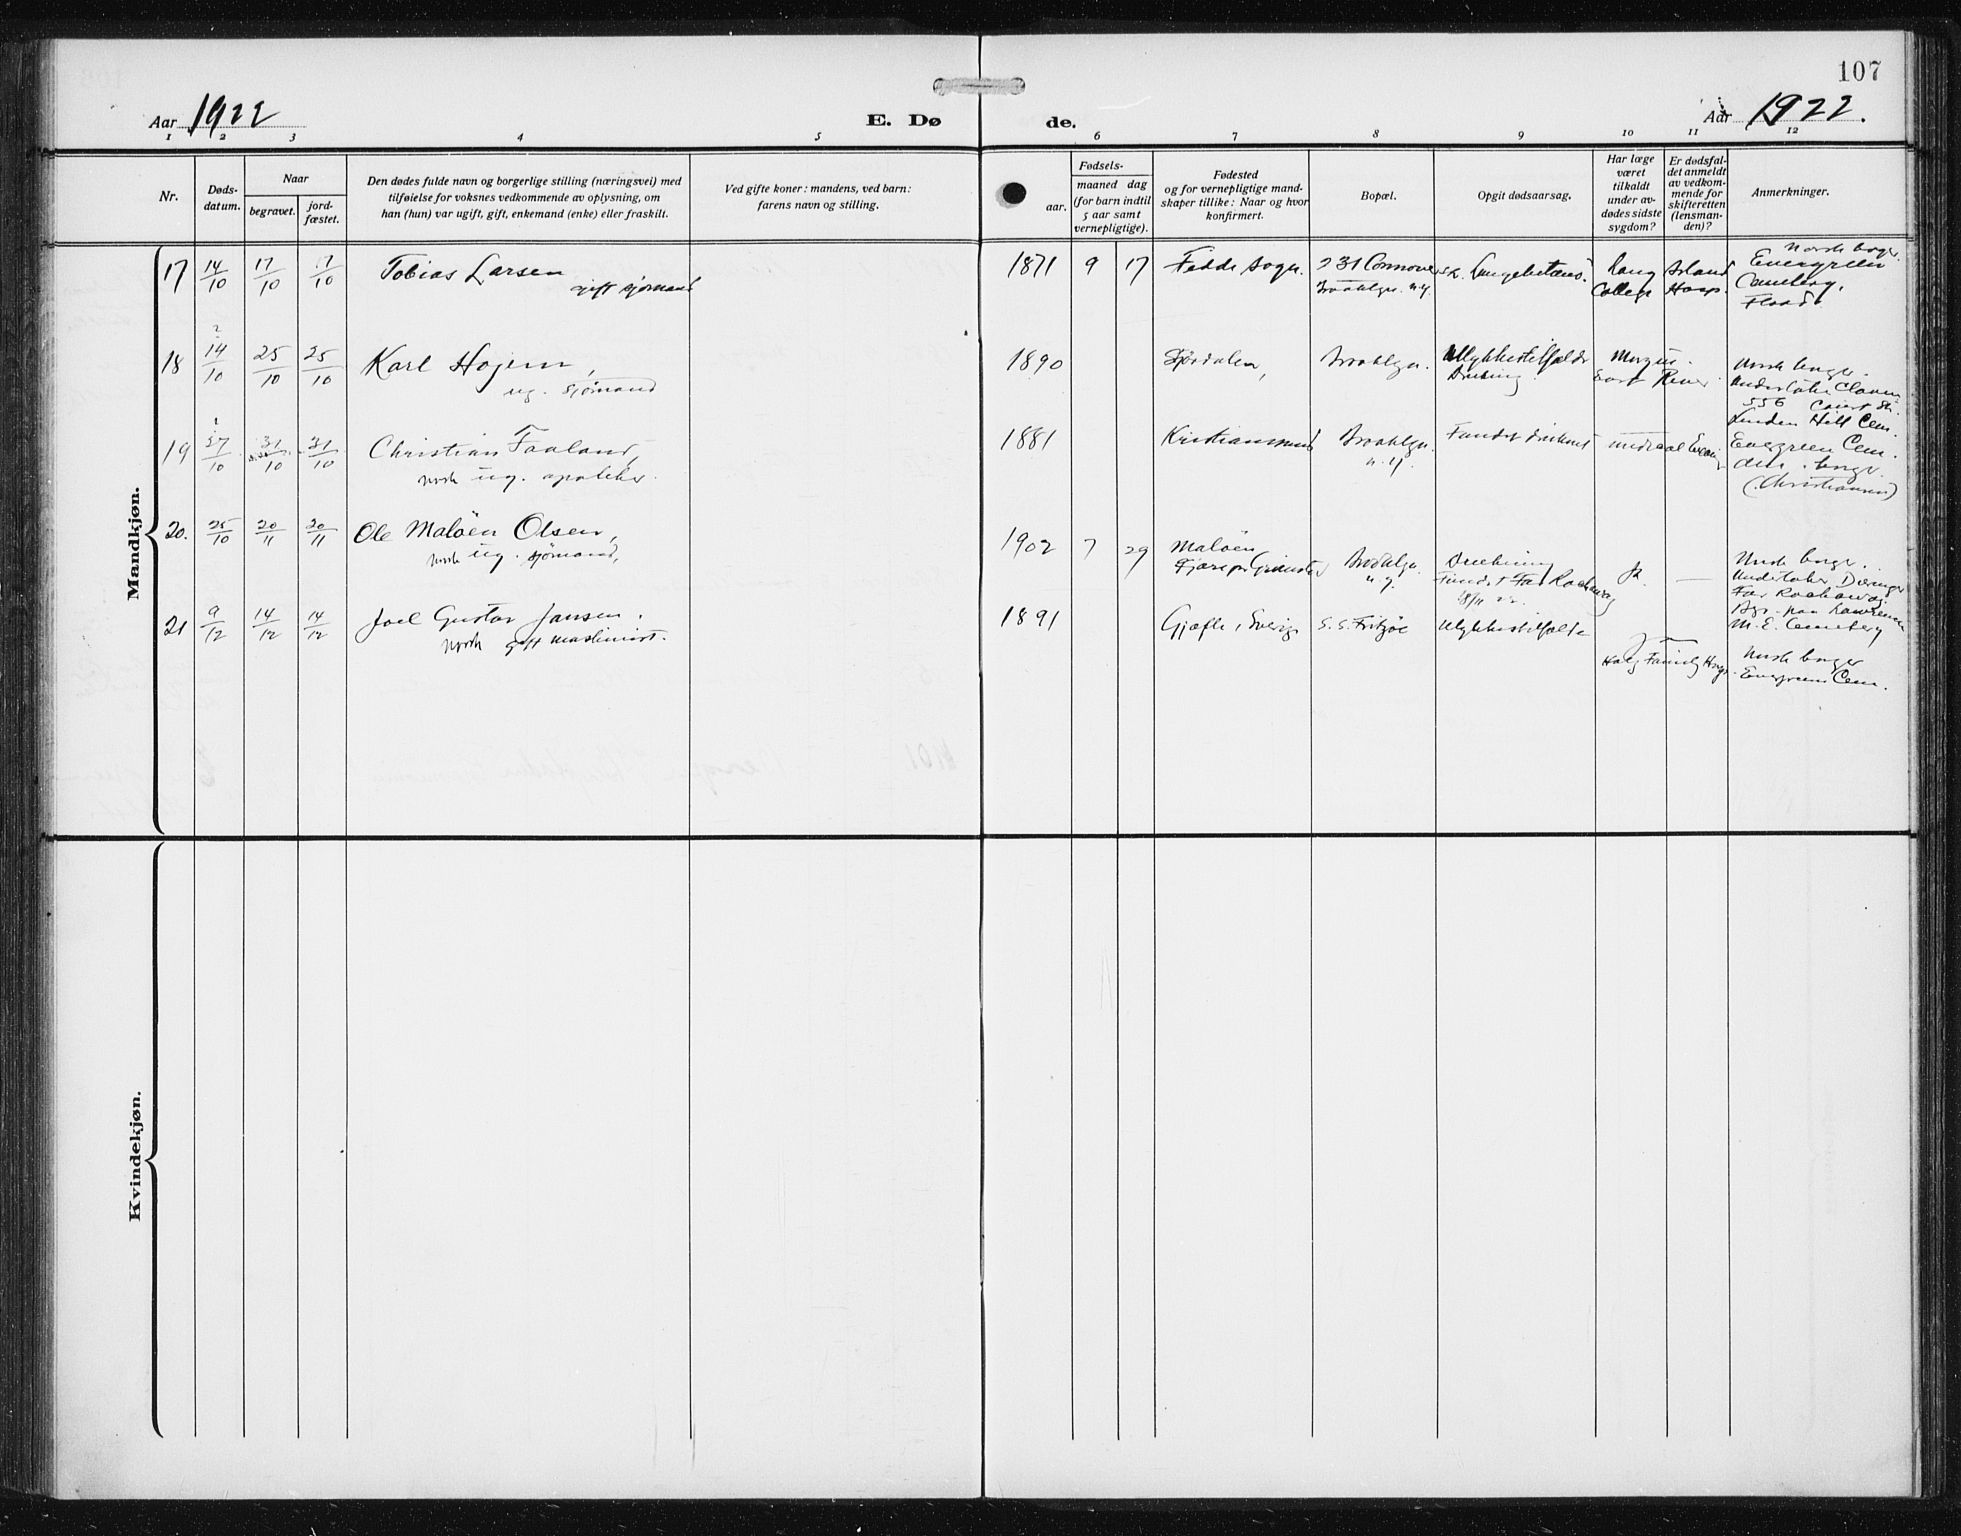 107
Aar 1922
E. Dø
de.
Aar 1922.
1 2 3 4 5 6 7 8 9 10 11 12
Nr.
Døds-
datum.
Naar
begravet.
jord-
fæstet.
Den dødes fulde navn og borgerlige stilling (næringsvei) med
tilføielse for voksnes vedkommende av oplysning, om
han (hun) var ugift, gift, enkemand (enke) eller fraskilt.
Ved gifte koner: mandens, ved barn:
farens navn og stilling.
Fødsels-
aar.
maaned dag
(for barn indtil
5 aar samt
vernepligtige).
Fødested
og for vernepligtige mand-
skaper tillike: Naar og hvor
konfirmert.
Bopæl.
Opgit dødsaarsag.
Har læge
været
tilkaldt
under av-
dødes sidste
sygdom?
Er dødsfal-
det anmeldt
av vedkom-
mende for
skifteretten
(lensman-
den)?
Anmerkninger.
Mandkjøn.
17 14/10 17/10 17/10 Tobias Larsen
gift sjømand
1871 9 17 Fedde sogn. 231 Conover
Brooklyn. N.Y.
Long Island
College Hosp.
Norsk borger.
Evergreen
Cemetery.
18 14/10 25/10 25/10 Karl Hojem,
ug. sjømand
1890 Brooklyn. Ulykkestilfælde
East River.
Norsk borger.
556
Linden Hill Cem.
19 27/10 31/10 31/10 Christian Faaland,
norsk ug. apoteker.
1881 Kristianssund Brooklyn.
N.Y.
Fundet druknet
Evergreen Cem.
(Christiansen)
20. 25/10 20/11 20/11 Ole Maløen Olsen,
norsk ug. sjømand,
1902 7 29 Maløen
Brooklyn.
N.Y.
Drukning
Fundet Far Rockaway
18/11 22.
—
Norsk borger.
Far Rockaway
M. E. Cemetery
21 9/12 14/12 14/12 Joel Gustav Jansen.
norsk gift maskinist.
1891 Gjæfle, Sverig S. S. Fritzøe Ulykkestilfælde
Holy Family Hosp.
Norsk borger
Evergreen Cem.
Kvindekjøn.